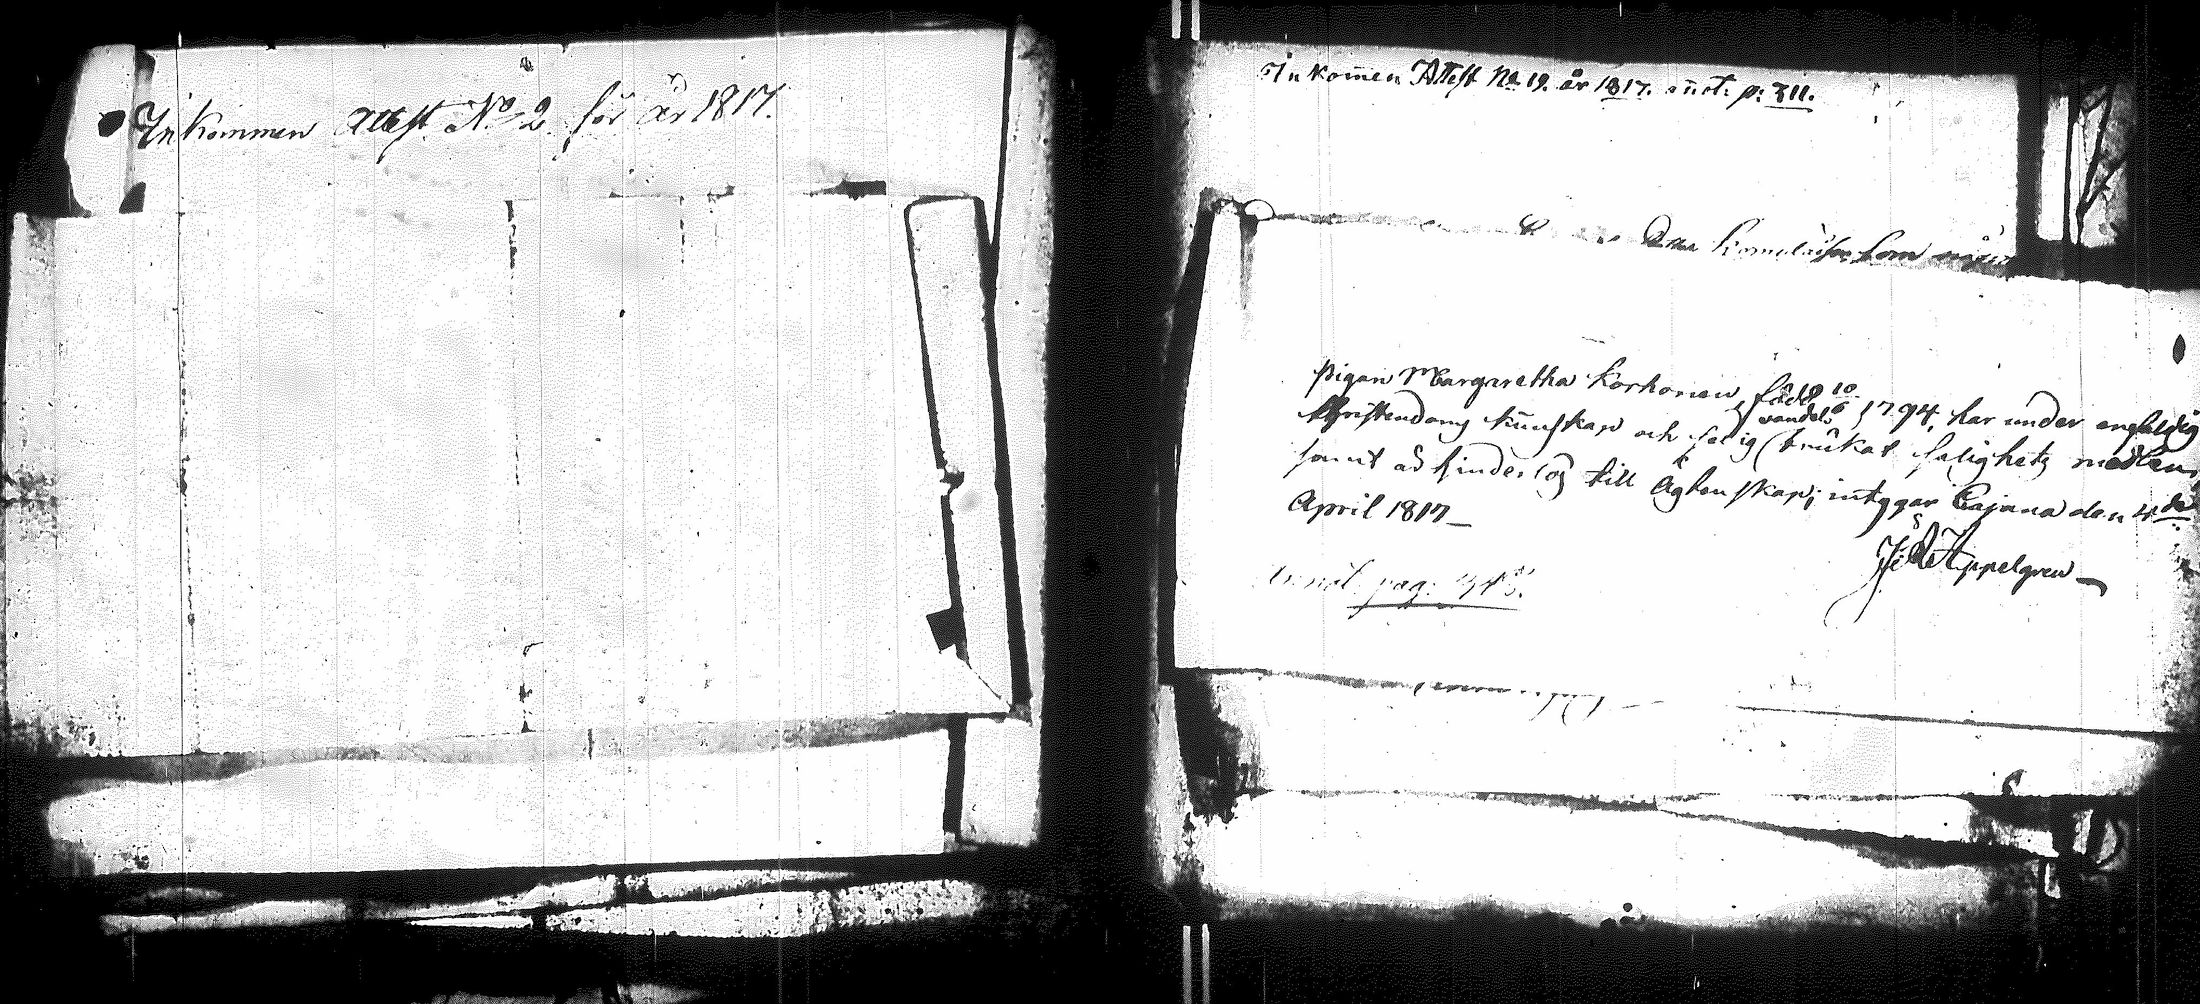 Inkommen Attest No 2 för år 1817.
Inkom̄en Attest No 19. år 1817. añot: p: 311.
som
Pigan Margaretha Korhonen, född 10/6 1794, har under enfaldig
Christendoms kunskap och salig brukat salighets medlen,
wandel
samt är hinderlös till Ägtenskap; intygar Cajana den 4de
April 1817_
Appelgren
añot. pag: 343.